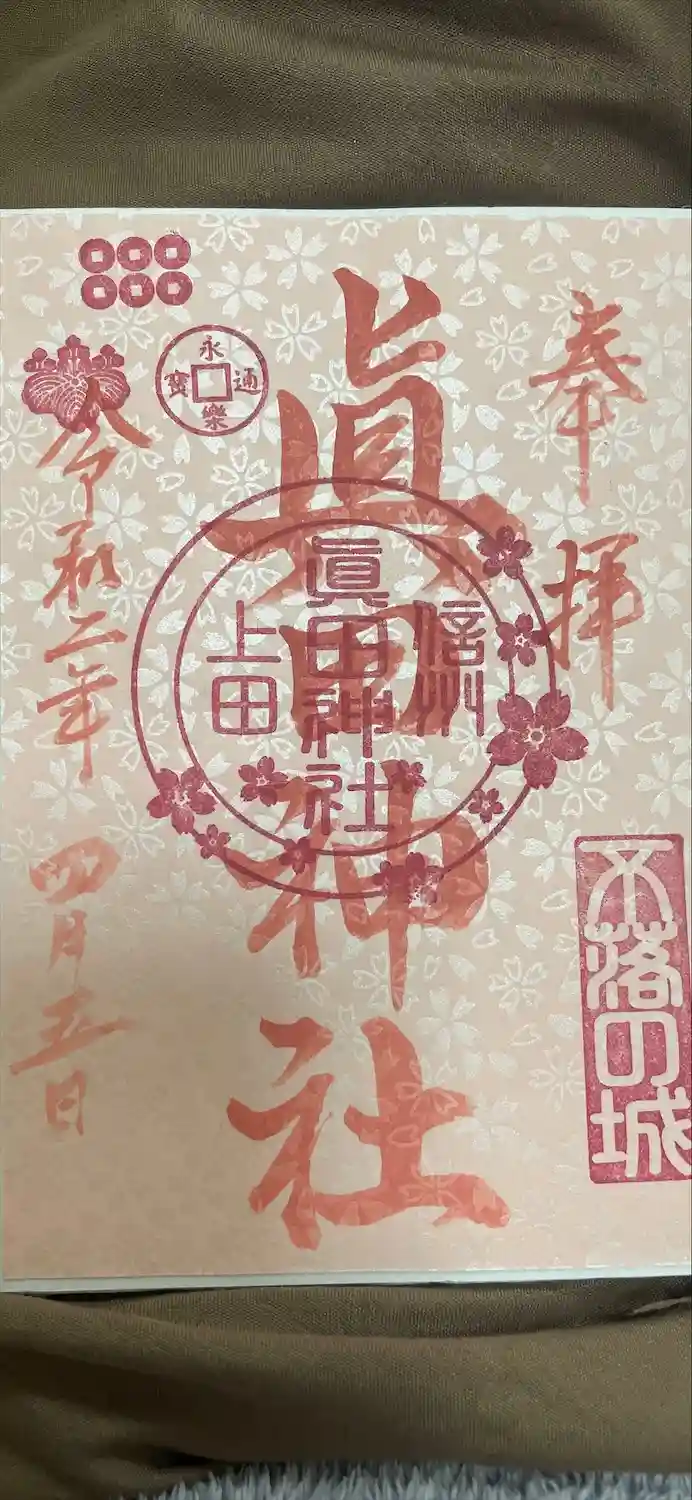 奉拝
不落の城
眞田神社
信州
眞田神社
上田
永樂通寳
令和二年
四月五日